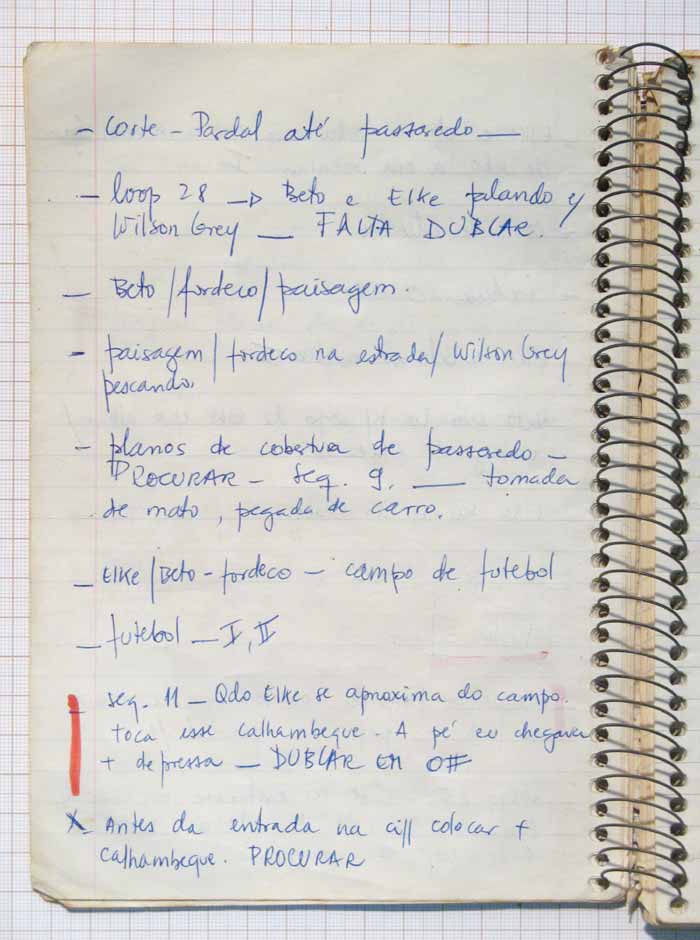 - Corte - Pardal até passaredo —
- loop 28 -> Beto e Elke falando c/
Wilson Grey — FALTA DUBLAR.
- Beto/fordeco/paisagem.
- paisagem/fordeco na estrada/Wilson Grey
pescando.
- planos de cobertura de passaredo -
PROCURAR - seq. 9. — tomada
de mato, pegada de carro.
- Elke/Beto-fordeco - campo de futebol
- futebol - I, II
- seq. 11 - Qdo Elke se aproxima do campo.
toca esse calhambeque. A pé eu chegava
+ depressa - DUBLAR EM OFF
X- Antes da entrada na colocar +
calhambeque. PROCURAR